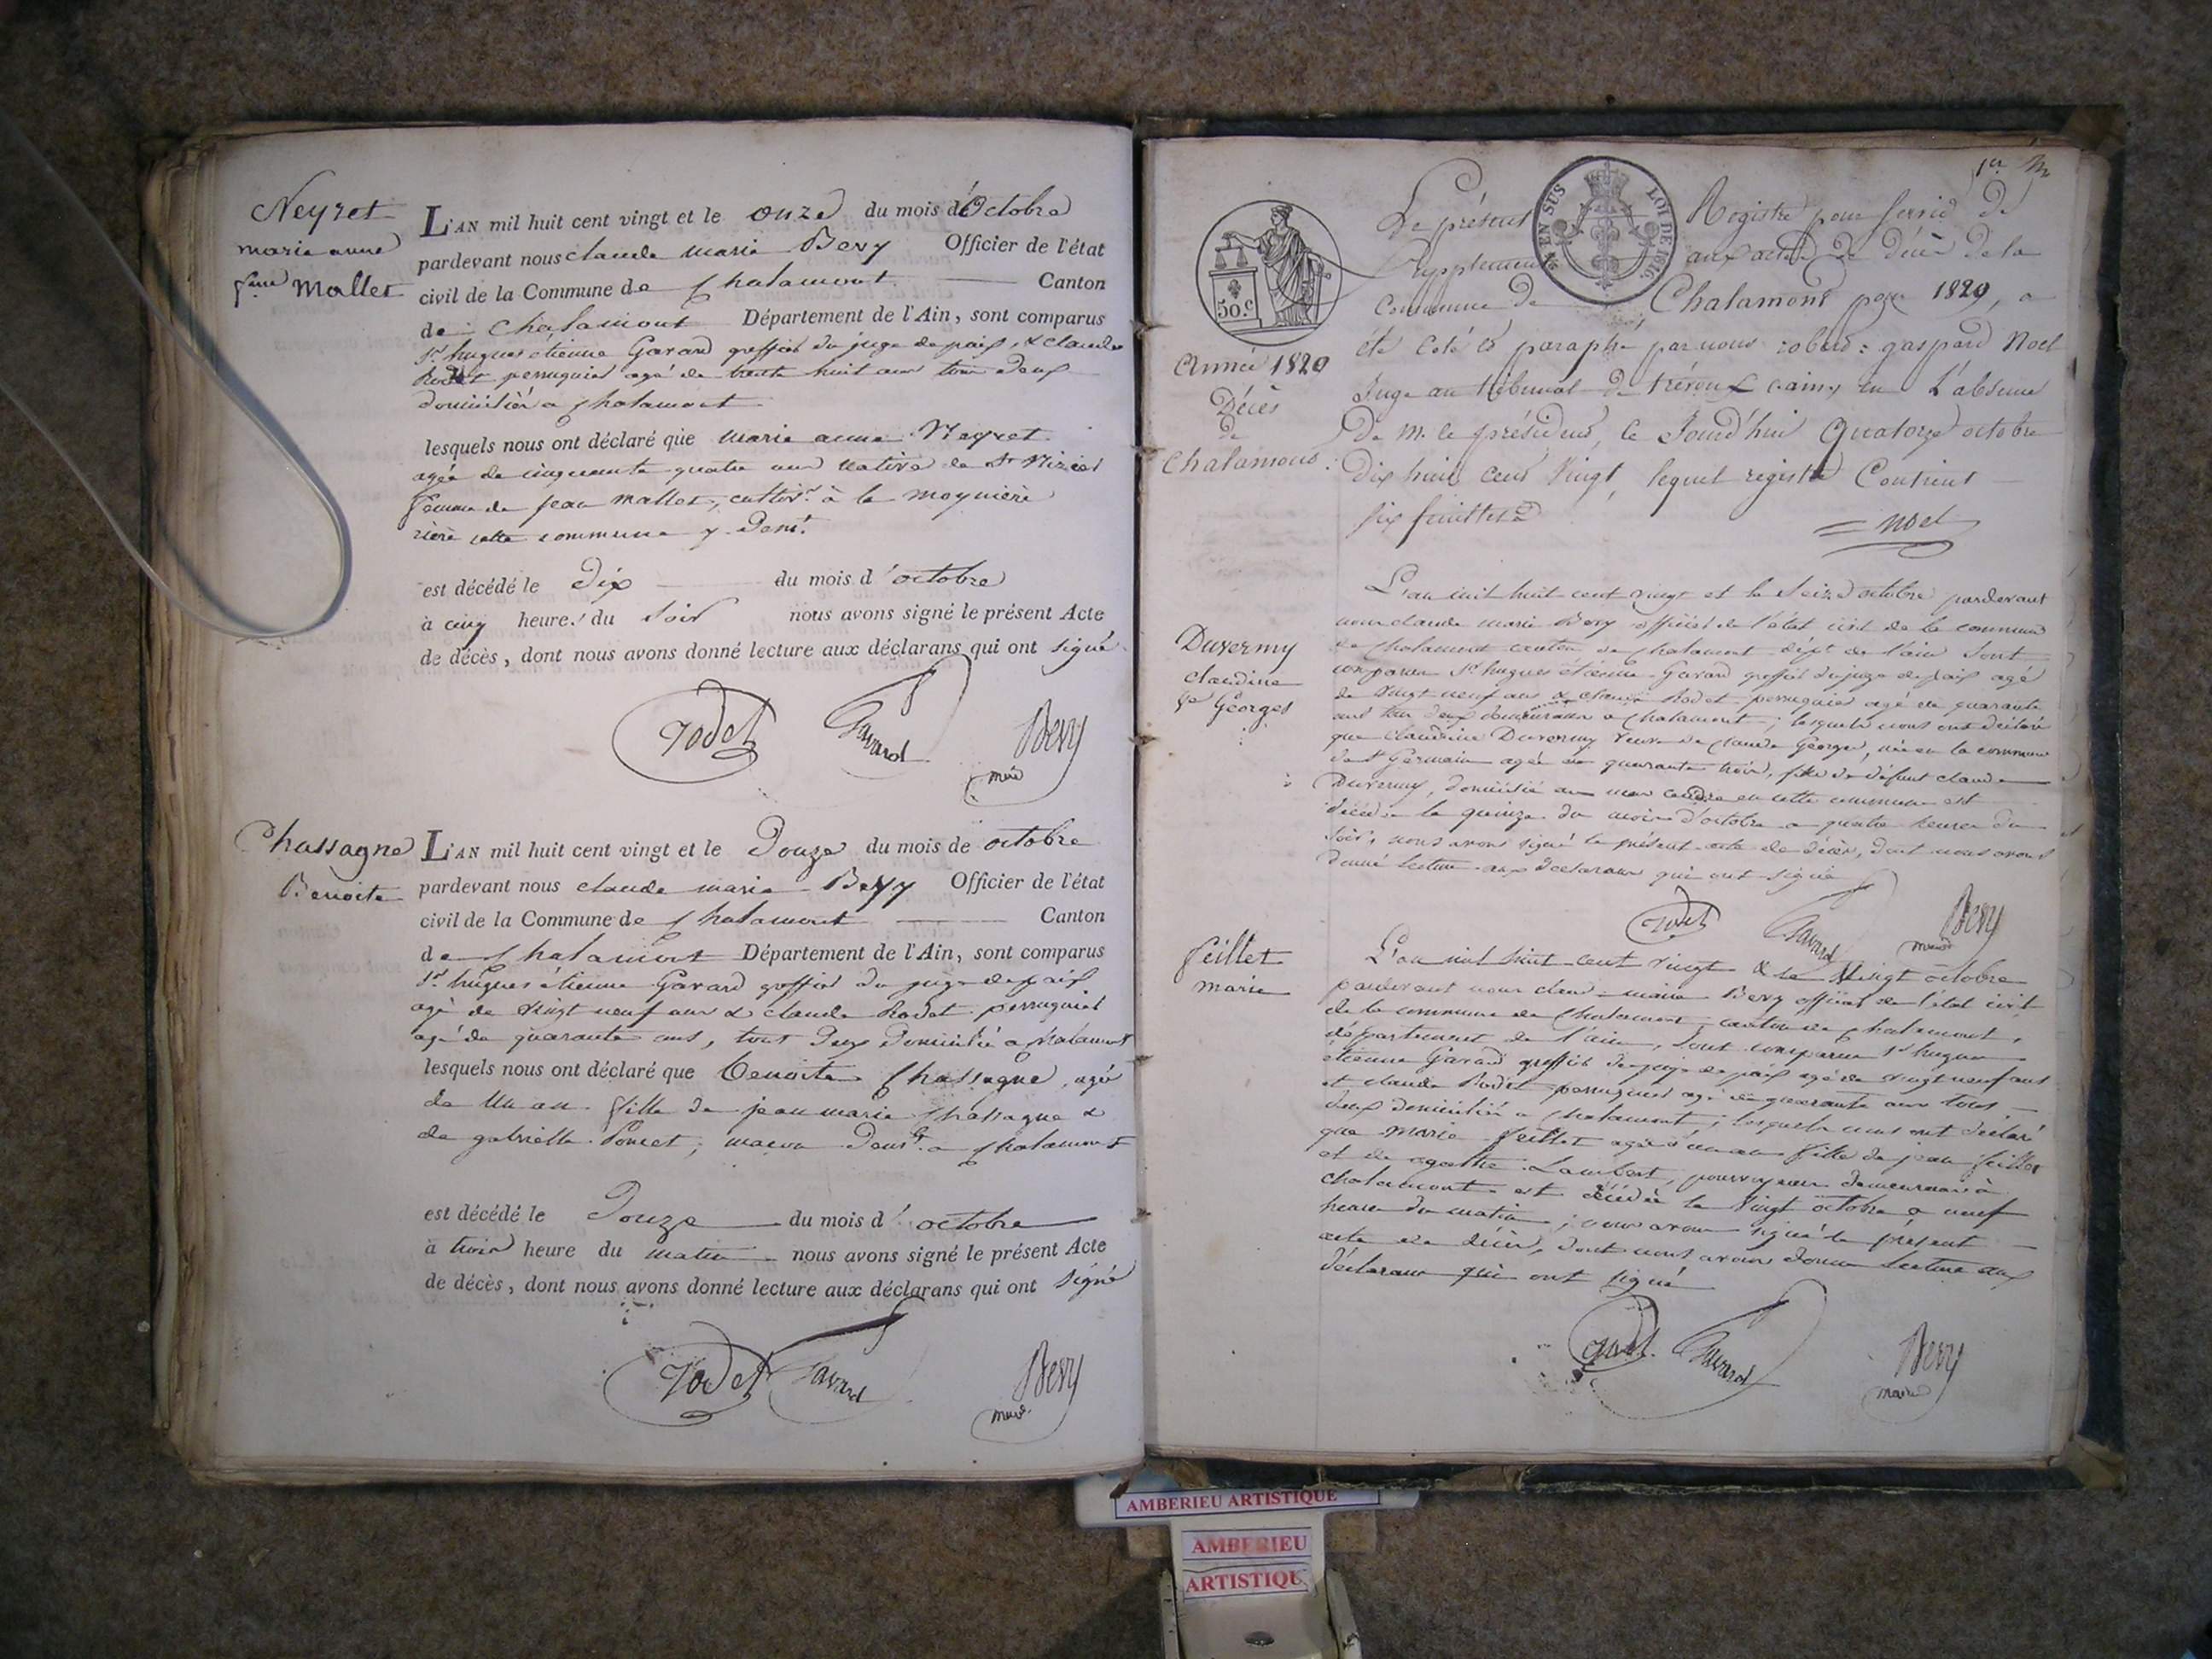 Neyret
marie anne
fme Mallet
L'AN mil huit cent vingt et le onze du mois d'Octobre
pardevant nous claude marie Bevy Officier de l'état
civil de la Commune de Chalamont Canton
de Chalamont Département de l'Ain, sont comparus
Sr hugues étienne Gavard greffier du juge de paix, & claude
Rodet perruquier agé de trente huit ans tous deux
domiciliés a Chalamont
lesquels nous ont déclaré que marie anne Neyret
agée de cinquante quatre ans native de St Nizier
femme de jean Mallet, cultivr à la moynière
rière cette commune y demt
est décédé le Dix du mois d'octobre
à cinq heures du soir nous avons signé le présent Acte
de décès, dont nous avons donné lecture aux déclarans qui ont signé
Rodet Gavard Bevy
maire
Chassagne
Benoite
L'AN mil huit cent vingt et le Douze du mois de octobre
pardevant nous claude marie Bevy Officier de l'état
civil de la Commune de Chalamont Canton
de Chalamont Département de l'Ain, sont comparus
Sr hugues étienne Gavard greffier du juge de paix
agé de vingt neuf ans & claude Rodet perruquier
agé de quarante ans, tous deux domiciliés a Chalamont
lesquels nous ont déclaré que Benoite Chassagne, agée
de un an fille de jean marie Chassagne &
de gabrielle Poncet, maçon demt a Chalamont
est décédé le Douze du mois d'octobre
à trois heure du matin nous avons signé le présent Acte
de décès, dont nous avons donné lecture aux déclarans qui ont signé
Rodet Gavard Bevy
maire
1er
50.c
EN SUS LOI DE 1816
Année 1820
Décès
de
Chalamont
Le présent Registre pour servir de
supplément aux actes de décès de la
Commune de Chalamont pour 1820, a
été coté & paraphé par nous robert gaspard Noel
Juge au tribunal de trévoux (ain) en L'absence
De M. le président, ce Jourd'hui Quatorze octobre
Dix huit cent Vingt, lequel registre Contient
six feuillets
Noel
Duvermy
claudine
ve Georges
L'an mil huit cent vingt et le seize octobre pardevant
nous claude marie Bevy officier de l'état civil de la commune
de Chalamont canton de Chalamont dépt de l'ain sont
comparus Sr hugues étienne Gavard greffier du juge de paix agé
de vingt neuf ans & claude Rodet perruquier agé de quarante
ans tous deux demeurans a Chalamont; lesquels nous ont déclaré
que claudine Duvermy veuve de claude Georges, née en la commune
de St Germain agée de quarante trois, fille de défunt claude
Duvermy, domiciliée au en cette commune est
décédée le quinze du mois d'octobre a quatre heures du
soir, nous avons signé le présent acte de décès, dont nous avons
donné lecture aux déclarans qui ont signé
Rodet Gavard Bevy
maire
feillet
marie
L'an mil huit cent vingt & le vingt octobre
pardevant nous claude marie Bevy officier de l'état civil
de la commune de Chalamont, canton de Chalamont,
département de l'ain, sont comparus Sr hugues
étienne Gavard greffier du juge de paix agé de vingt neuf ans
et claude Rodet perruquier agé de quarante ans tous
deux domiciliés a Chalamont; lesquels nous ont déclaré
que marie feillet agée d'un an fille de jean feillet
et de agathe Lambert, pourvoyeur demeurans à
chalamont est décédée le vingt octobre a neuf
heures du matin; nous avons signé le présent
acte de décès, dont nous avons donné lecture aux
déclarans qui ont signé
Rodet Gavard Bevy
maire
AMBERIEU ARTISTIQUE
AMBERIEU
ARTISTIQU